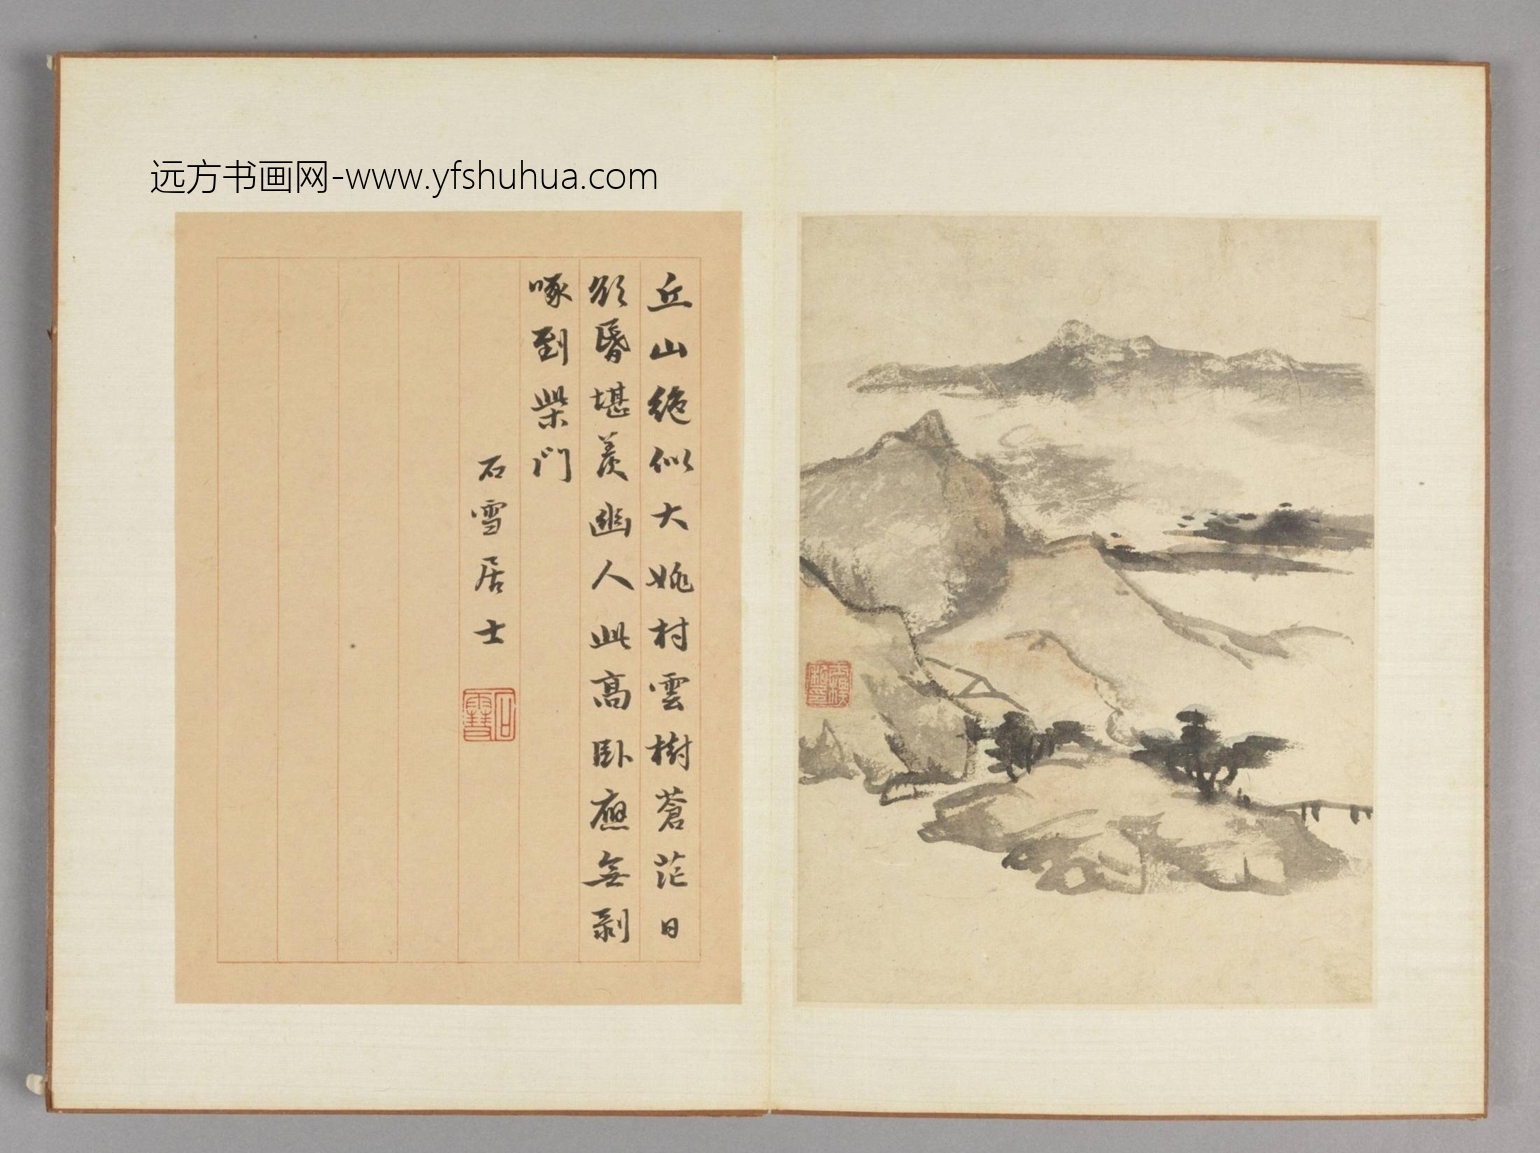 远方书画网-www.yfshuhua.com
丘山絶似大姚村雲樹蒼茫日
欲昏堪羨幽人此高卧應無剥
啄到柴門
石雪居士
石雪